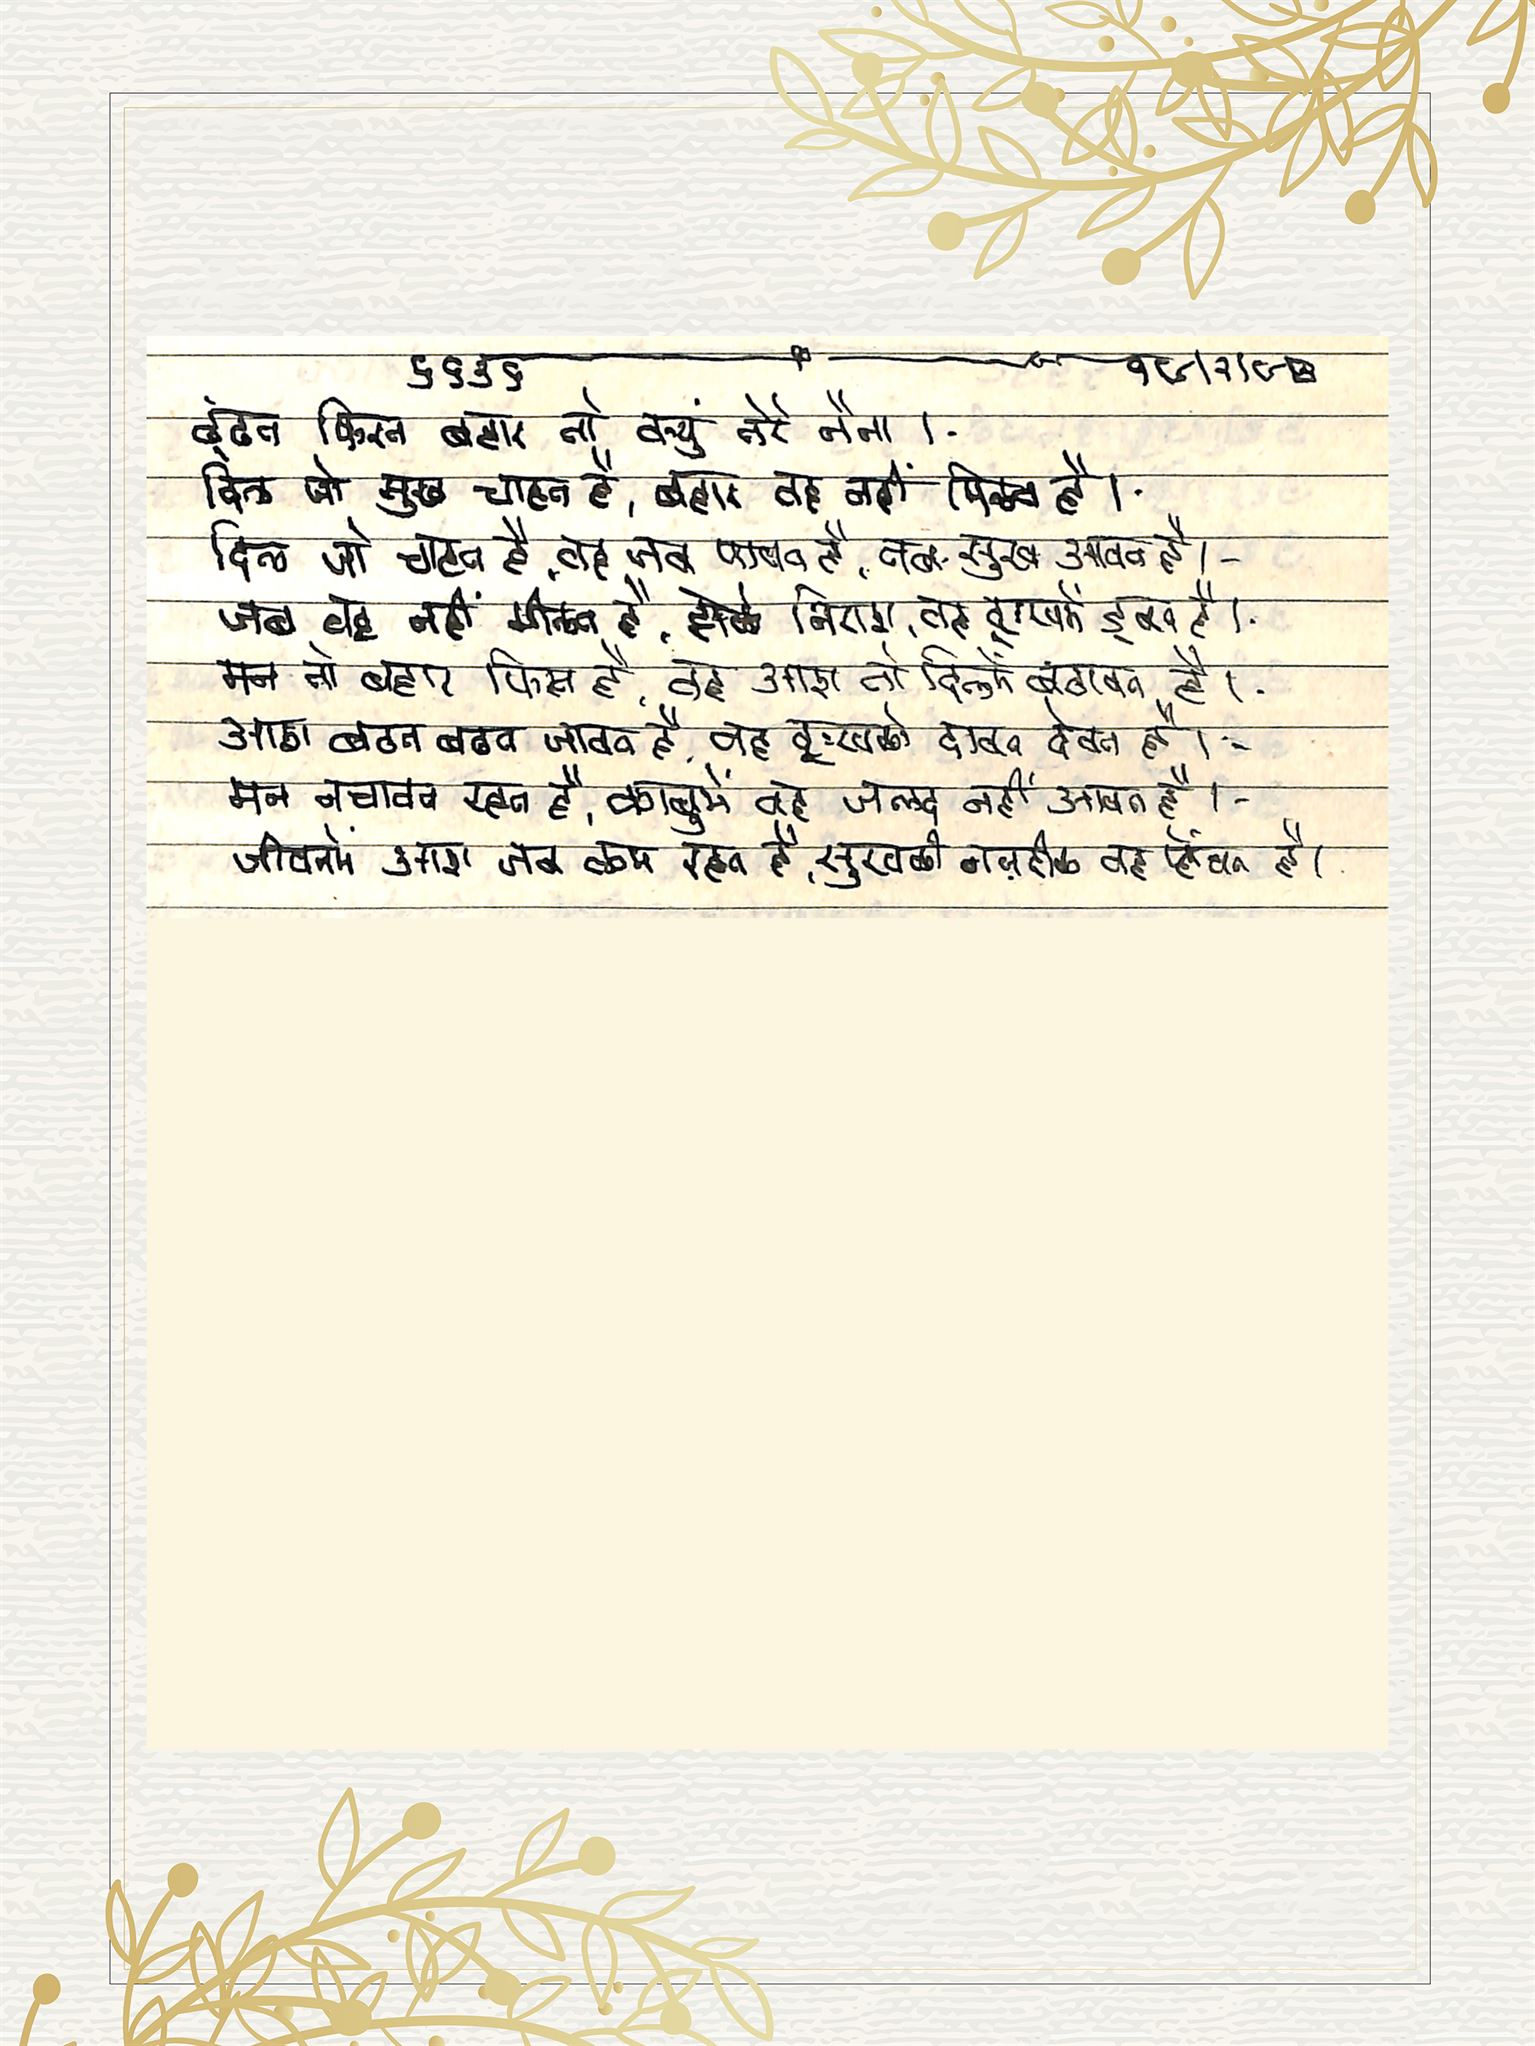 ढूंढत फिरत बहार तो क्युं तेरे नैना ।
दिल जो सुख चाहत है, बहार वह नहीं मिलत है ।
दिल जो चाहत है, वह जब पावत है, तब सुख आवत है ।
जब वह नहीं मीलत है, होके निराश, वह दुःखमें डूबत है ।
मन तो बहार फिरत है, वह आश तो दिलमें बढावत है ।
आशा बढत बढत जावत है, वह दुःखको दावत देवत है ।
मन नचावत रहत है, काबुमें वह जल्द नहीं आवत है ।
जीवनमें आशा जब कम रहत है, सुखकी नज़दीक वह पहोंचत है ।